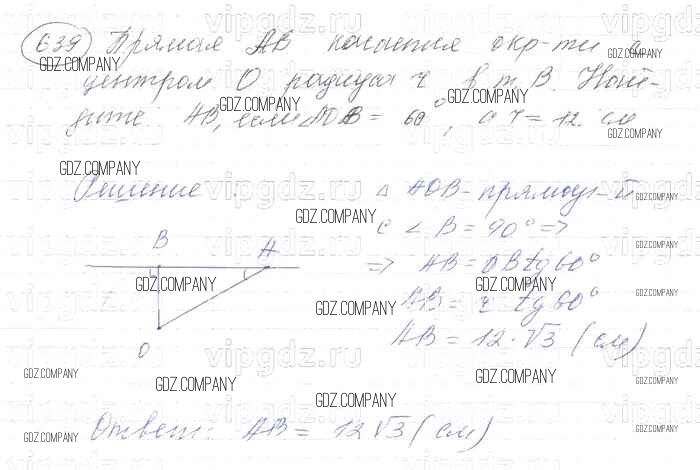 639 Прямая AB касается окр-ти с
центром O радиуса r в т. B. Най-
дите AB, если ∠AOB = 60°, а r = 12 см
Решение
△ AOB - прямоуг-й
с ∠B = 90° =>
B A
=> AB = OB tg 60°
AB = r tg 60°
AB = 12 · √3 (см)
O
Ответ: AB = 12 √3 (см)
GDZ.COMPANY
vipgdz.ru